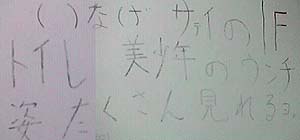 いなげ サティの 1F
トイレ 美少年のウンチ
姿たくさん見れるヨ。